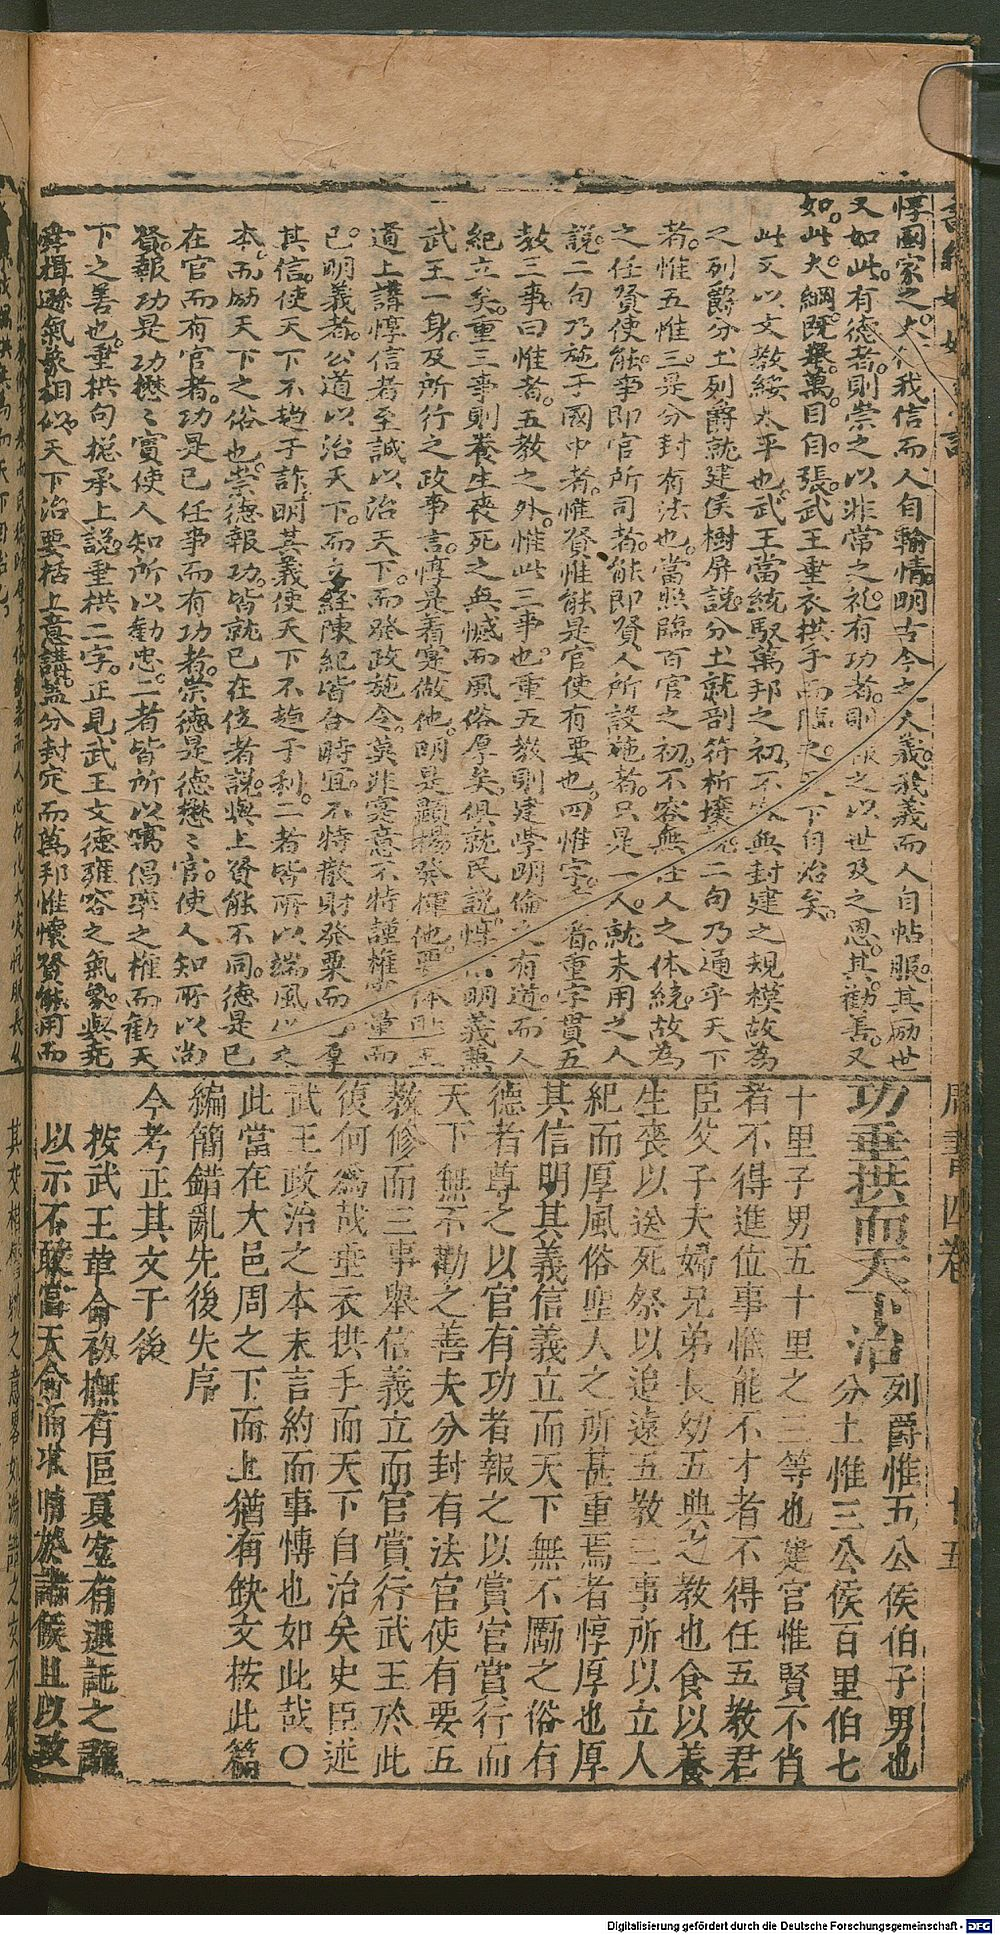 惇國家之大信我信而人自輸情明古今之大義我義而人自帖服其励世
又如此有德者則崇之以非常之礼有功者則報之以世及之恩其勸善又
如此大綱既舉萬目自張武王垂衣拱手而臨之天下自治矣
此又以文教綏太平也武王當統馭萬邦之初不可無封建之規模故為
之列爵分土列爵就建侯樹屏說分土就剖符析壤說二句乃通乎天下
者惟五惟三是分封有法也當照臨百官之初不容無任人之体統故為
之任賢使能事即官所司者能即賢人所設施者只是一人就未用之人
說二句乃施于國中者惟賢惟能是官使有要也四惟字着重字貫五
教三事曰惟者五教之外惟此三事也重五教則建學明倫之有道而人
紀立矣重三事則養生喪死之無憾而風俗厚矣俱就民說惇信明義兼
武王一身及所行之政事言惇是着寔做他明是顯揚發揮他要体貼上
道上講惇信者至誠以治天下而發政施令莫非寔意不特謹權審量而
已明義者公道以治天下而立經陳紀皆合時宜不特散財發粟而已厚
其信使天下不趋于詐明其義使天下不趋于利二者皆所以端風化之
本而励天下之俗也崇德報功皆就已在位者說與上賢能不同德是已
在官而有官者功是已任事而有功者崇德是德懋懋官使人知所以尚
賢報功是功懋懋賞使人知所以勸忠二者皆所以寓倡率之權而勸天
下之善也垂拱句総承上說垂拱二字正見武王文德雍容之氣象與尭
舜揖遜氣象相似天下治要括上意講盖分封定而萬邦惟懷賢能用而
周書四卷
十五
功垂拱而天下治
列爵惟五公侯伯子男也
分土惟三公侯百里伯七
十里子男五十里之三等也建官惟賢不肖
者不得進位事惟能不才者不得任五教君
臣父子夫婦兄弟長幼五典之教也食以養
生喪以送死祭以追遠五教三事所以立人
紀而厚風俗聖人之所甚重焉者惇厚也厚
其信明其義信義立而天下無不勵之俗有
德者尊之以官有功者報之以賞官賞行而
天下無不勸之善夫分封有法官使有要五
教修而三事舉信義立而官賞行武王於此
復何為哉垂衣拱手而天下自治矣史臣述
武王政治之本末言約而事博也如此哉〇
此當在大邑周之下而上猶有缺文按此篇
編簡錯亂先後失序
今考正其文于後
按武王革命初撫有區夏宜有退託之辭
以示不敢當天命而求助於諸侯且以致